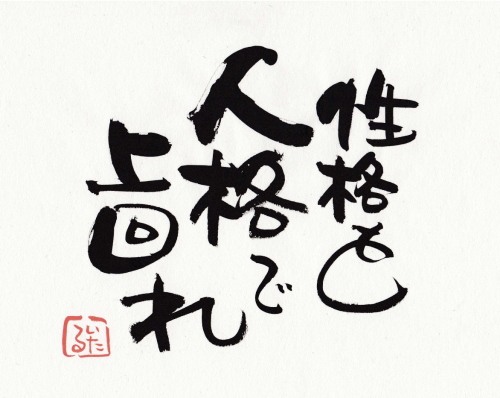 性格を
人格で
上回れ
いたる